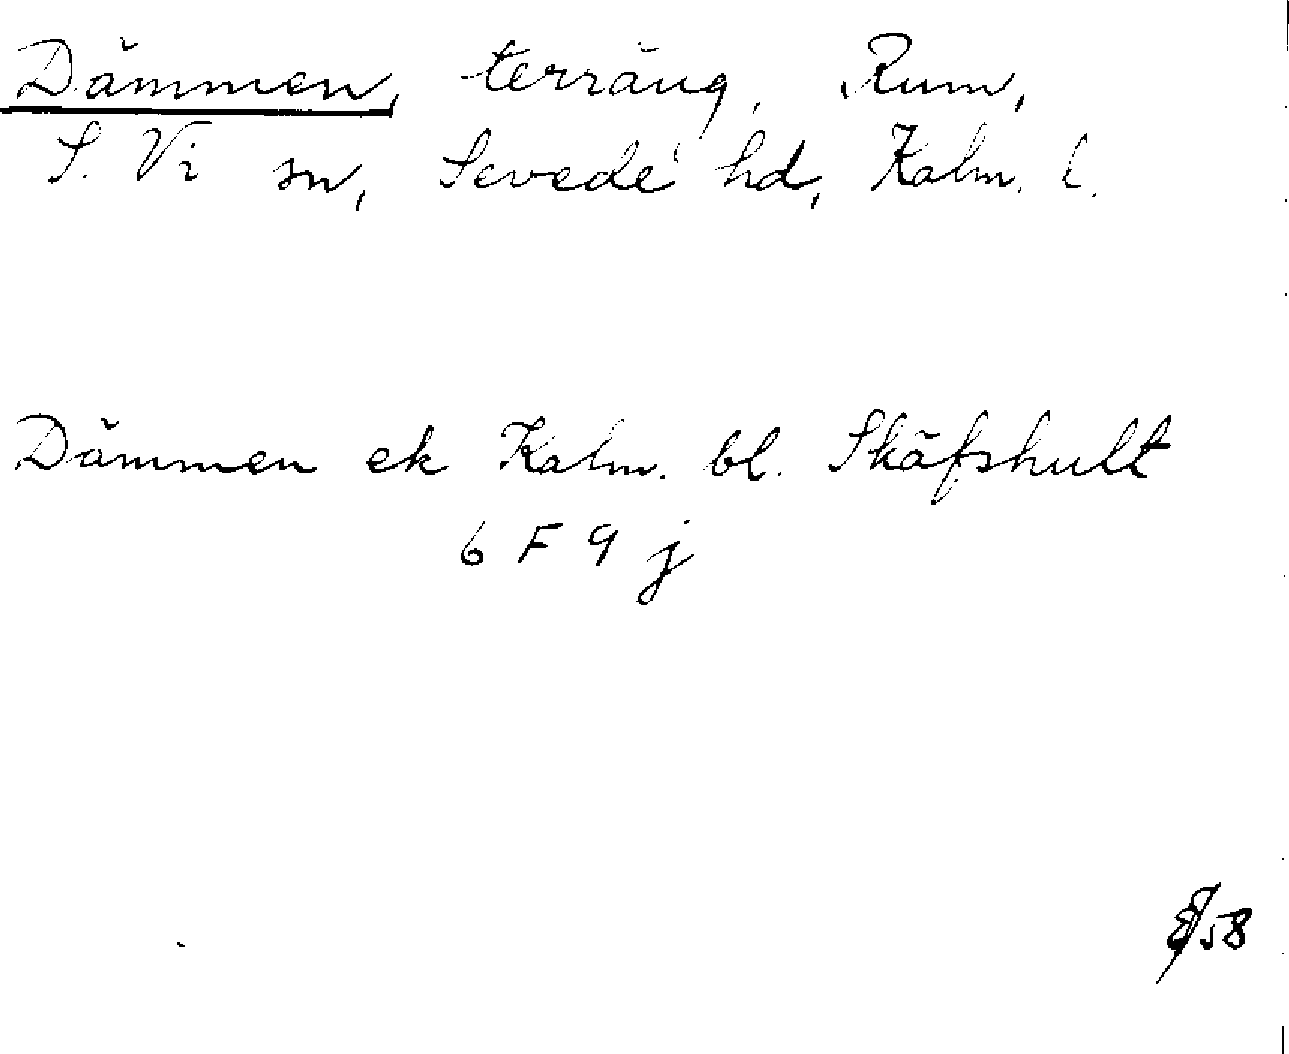 Dämmen, terräng, Rum,
S. Vi sn, Sevede hd, Kalm. l.
Dämmen ek Kalm. bl. Skäfshult
6 F 9 j
58